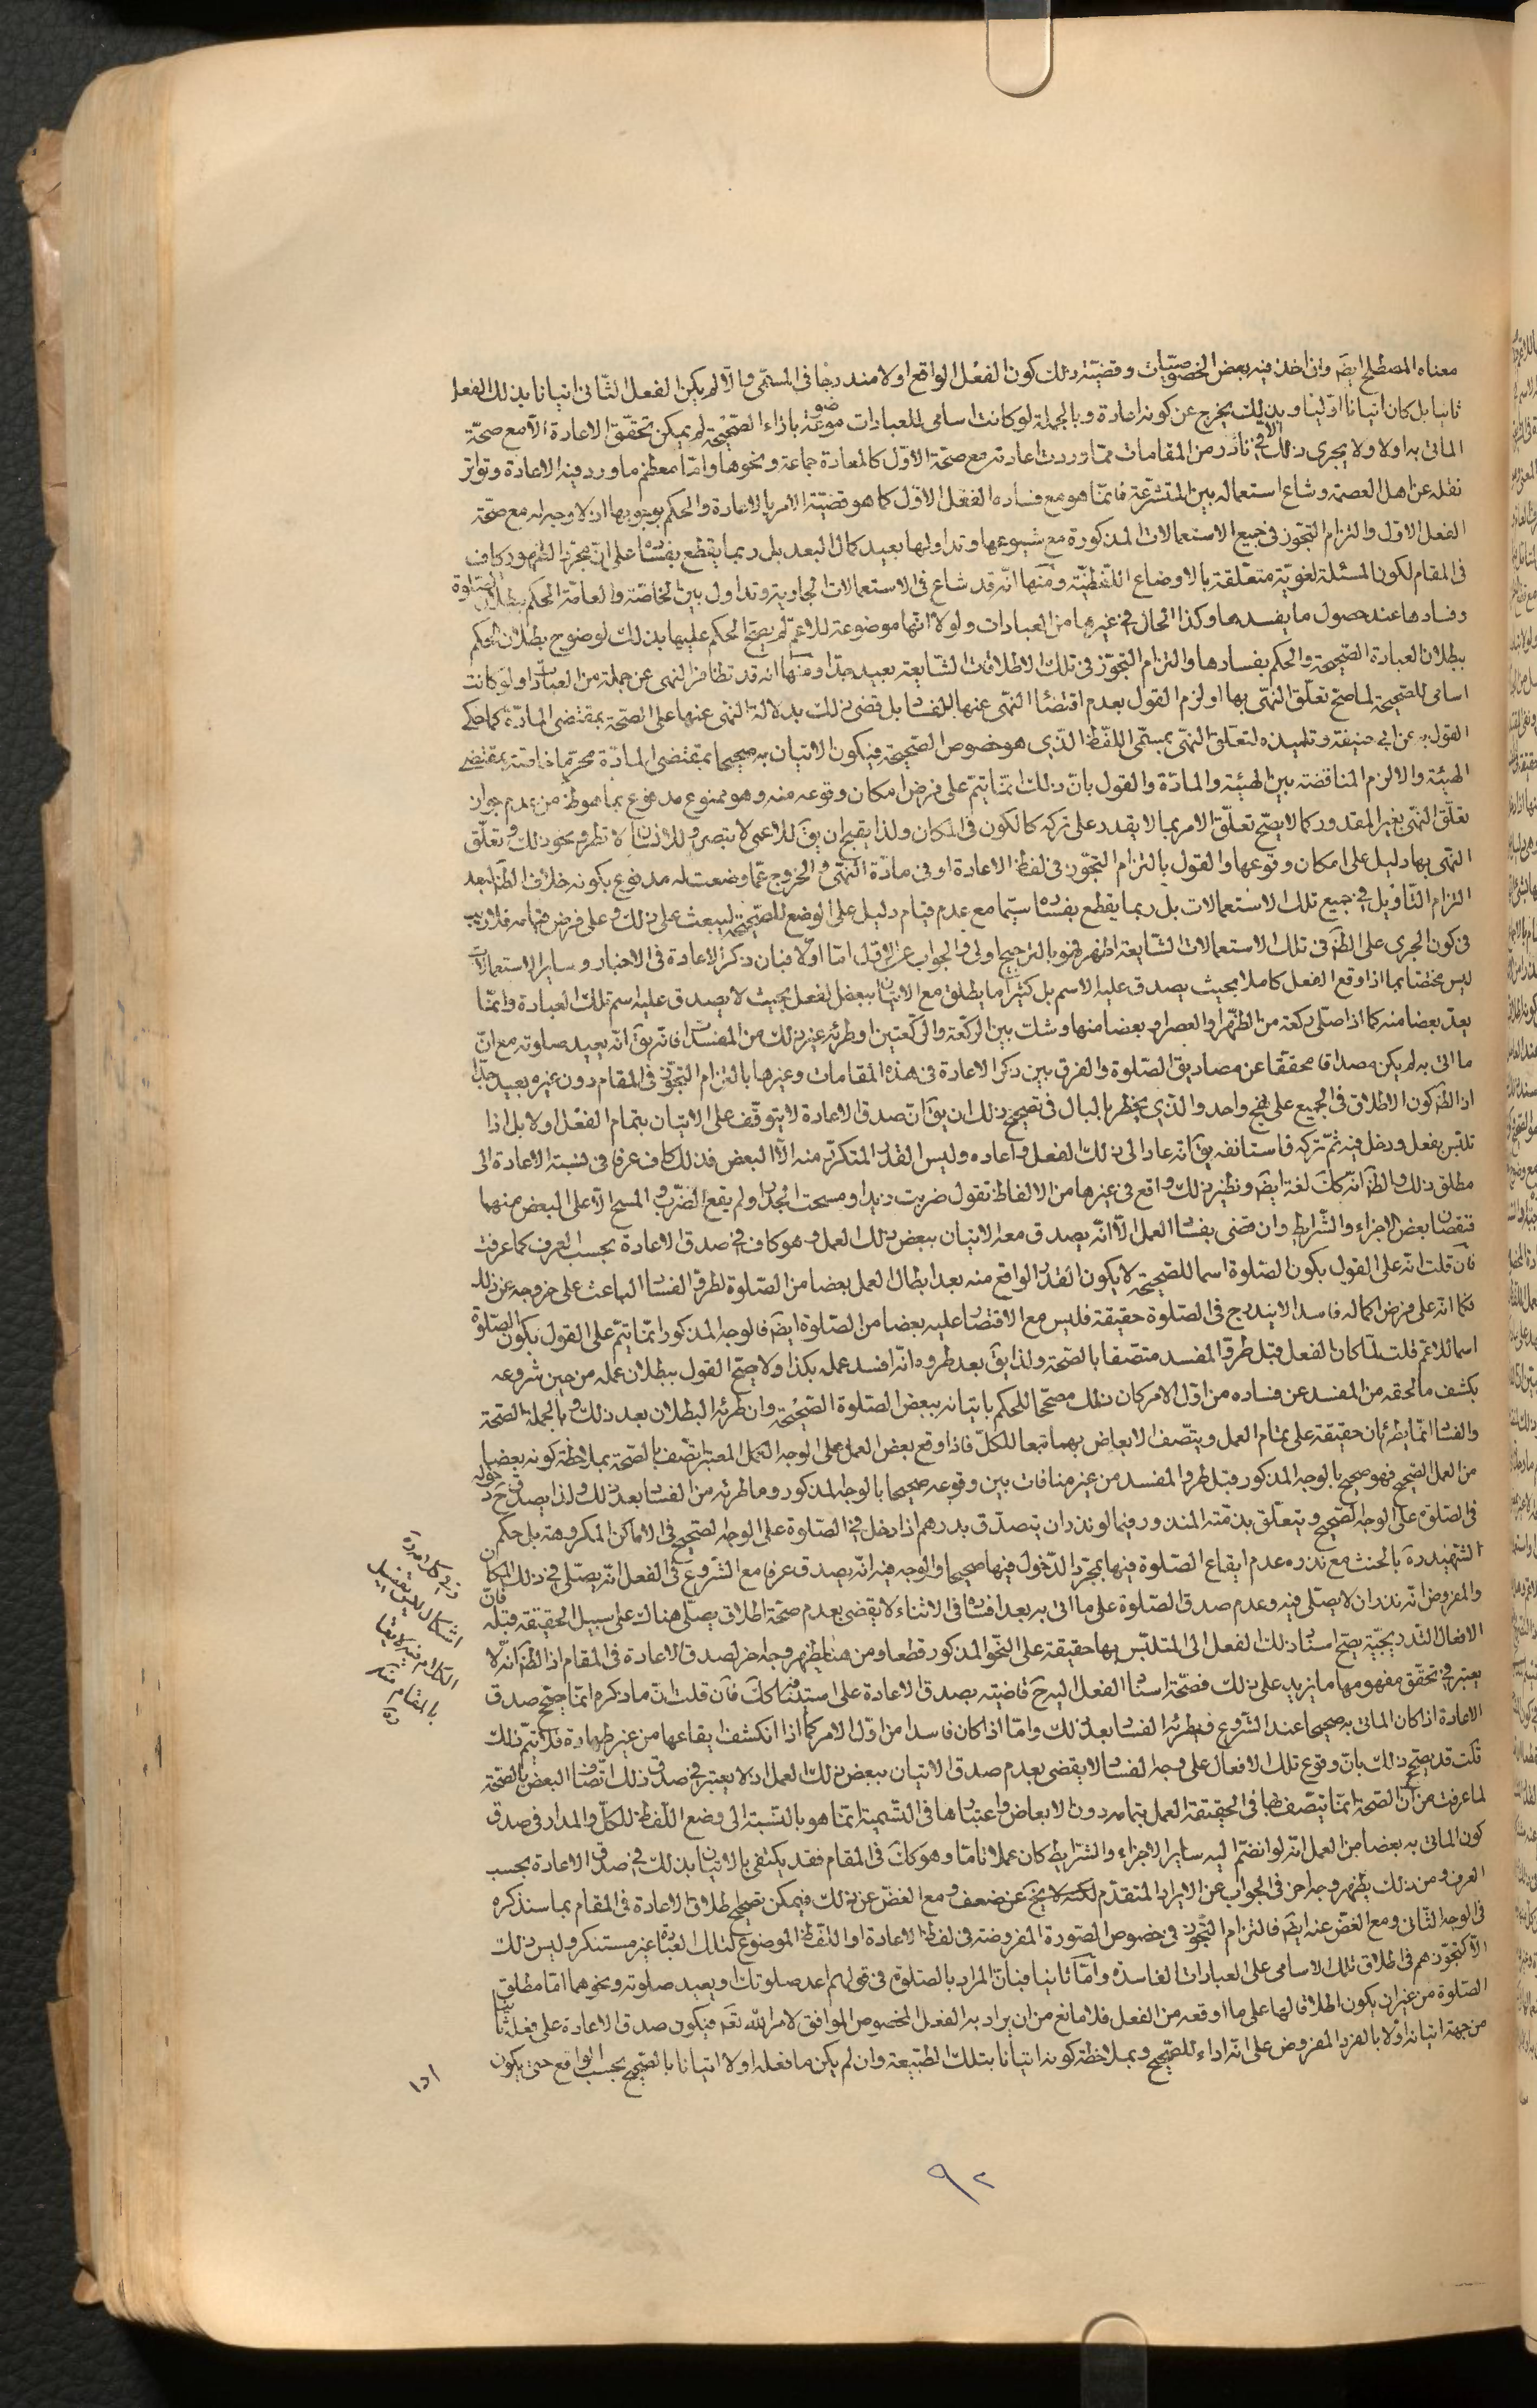 معناه المصطلح ايضَ وان اخذ فيه بعض الخصوصيّات وقضيّة ذلك كون الفعل الواقع اولا مندرجا فى المسمّى والّا لم يكن الفعل الثّانى اتيانا بذلك الفعل
ثانيا بل كان اتيانا اوّليّا وبذلك يخرج عن كونه اعادة وبالجملة لو كانت اسامى للعبادات موضوعة بازاء الصّحيحة لم يمكن تحقّق الاعادة الّا مع صحّة
الماتى به اولا ولا يجرى ذلك الّا فى نادر من المقامات ممّا وردت اعادته مع صحّة الاوّل كالمعادة جماعة ونحوها وامّا معظم ما ورد فيه الاعادة وتواتر
نقله عن اهل العصمة وشاع استعماله بين المتشرّعة فانّما هو مع فساد الفعل الاوّل كما هو قضيّة الامر بالاعادة والحكم بوجوبها اذ لا وجه له مع صحّة
الفعل الاوّل والتزام التجوّز فى جميع الاستعمالات المذكورة مع شيوعها وتداولها بعيد كمال البعد بل ربما يقطع بفساده على انّ مجرّد الظّهور كاف
فى المقام لكون المسئلة لغويّة متعلّقة بالاوضاع اللّفظيّة ومنها انّه قد شاع فى الاستعمالات الجارية وتداول بين الخاصّة والعامّة الحكم ببطلان الصّلوة
وفسادها عند حصول ما يفسدها وكذا الحال فى غيرها من العبادات ولولا انّها موضوعة للاعمّ لم يصحّ الحكم عليها بذلك لوضوح بطلان الحكم
ببطلان العبادة الصّحيحة والحكم بفسادها والتزام التجوّز فى تلك الاطلاقات الشّايعة بعيد جدّا ومنها انّه قد تظافر النّهى عن جملة من العبادات ولو كانت
اسامى للصّحيحة لما صحّ تعلّق النّهى بها او لزم القول بعدم اقتضاء النّهى عنها للفساد بل قضى ذلك بدلالة النّهى عنها على الصّحة بمقتضى المادّة كما حكى
القول به عن ابى حنيفة وتلميذه لتعلّق النّهى بمسمّى اللّفظ الّذى هو خصوص الصّحيحة فيكون الاتيان به صحيحا بمقتضى المادّة محرّما خاصّة بمقتضى
الهيئة والا لزم المناقضة بين الهيئة والمادّة والقول بانّ ذلك انّما يتمّ على فرض امكان وقوعه منه وهو ممنوع مدفوع بما هو ظ من عدم جواز
تعلّق النّهى بغير المقدور كما لا يصحّ تعلّق الامر بما لا يقدر على تركه كالكون فى المكان ولذا يقبح ان يقَ للاعمى لا تبصر وللانسان لا تطر ونحو ذلك وتعلّق
النّهى بها دليل على امكان وقوعها والقول بالتزام التجوّز فى لفظ الاعادة او فى مادّة النّهى والخروج عمّا وضعت له مدفوع بكونه خلاف الظّ لبعد
التزام التّاويل فى جميع تلك الاستعمالات بل ربما يقطع بفساده سيّما مع عدم قيام دليل على الوضع للصّحيحة ليبعث على ذلك وعلى فرض قيامه فلا ريب
فى كون الجرى على الظّ فى تلك الاستعمالات الشّايعة اظهر فهو بالترجيح اولى والجواب عن الاوّل امّا اوّلا فبان ذكر الاعادة فى الاخبار وساير الاستعمالات
ليس مختصّا بما اذا وقع الفعل كاملا بحيث يصدق عليه الاسم بل كثيرا ما يطلق مع الاتيان ببعض الفعل بحيث لا يصدق عليه اسم تلك العبادة وانّما
يعدّ بعضا منه كما اذا صلّى ركعة من الظّهر او العصر او بعضا منها وشك بين الركعة والركعتين او طرئه غير ذلك من المفسدات فانّه يقَ انّه يعيد صلوته مع انّ
ما اتى به لم يكن مصداقا محققا عن مصاديق الصّلوة والفرق بين ذكر الاعادة فى هذه المقامات وغيرها بالتزام التجوّز فى المقام دون غيره بعيد جدّا
اذ الظّ كون الاطلاق فى الجميع على نهج واحد والّذى يخطر بالبال فى تصحيح ذلك ان يقَ انّ صدق الاعادة لا يتوقّف على الاتيان بتمام الفعل اولا بل اذا
تلبّس بفعل ودخل فيه ثمّ تركه فاستانفه يقَ انّه عاد الى ذلك الفعل واعاده وليس القدر المتكرّر منه الّا البعض فذلك كاف عرفا فى نسبة الاعادة الى
مطلق ذلك والظّ انّه ككَ لغة ايضَ ونظير ذلك واقع فى غيرها من الالفاظ تقول ضربت زيدا ومسحت الجدار ولم يقع الضّرب والمسح الّا على البعض منهما
فنقصان بعض الاجزاء والشّرايط وان قضى بفساد العمل الّا انّه يصدق معه الاتيان ببعض ذلك العمل وهو كاف فى صدق الاعادة بحسب العرف كما عرفت
فان قلت انّه على القول بكون الصّلوة اسما للصّحيحة لا يكون القدر الواقع منه بعد ابطال العمل بعضا من الصّلوة لطروّ الفساد الباعث على خروجه عن ذلك
فكما انّه على فرض اكماله فاسدا لا يندرج فى الصّلوة حقيقة فليس مع الاقتصار عليه بعضا من الصّلوة ايضَ فالوجه المذكور انّما يتمّ على القول بكون الصّلوة
اسما للاعمّ قلت لمّا كان الفعل قبل طروّ المفسد متّصفا بالصّحة ولذا يقَ بعد طروه انّه افسد عمله بكذا ولا يصحّ القول ببطلان عمله من حين شروعه
بكشف ما لحقه من المفسد عن فساده من اوّل الامر كان ذلك مصحّحا للحكم باتيانه ببعض الصّلوة الصّحيحة وان طرئه البطلان بعد ذلك وبالجملة الصّحة
والفساد انّما يطرئان حقيقة على تمام العمل ويتّصف الابعاض بهما تبعا للكلّ فاذا وقع بعض العمل على الوجه المعتبر اتّصف بالصّحة بملاحظة كونه بعضا
من العمل الصّحيح فهو صحيح بالوجه المذكور قبل طروّ المفسد من غير منافات بين وقوعه صحيحا بالوجه المذكور وما طرئه من الفساد بعد ذلك ولذا يصدق حَ دخوله
فى الصّلوة على الوجه الصّحيح ويتعلّق بذمّته المنذور فيما لو نذر ان يتصدّق بدرهم اذا دخل فى الصّلوة على الوجه الصّحيح فى الاماكن المكروهة بل حكم
الشّهيد رَه بالحنث مع نذره عدم ايقاع الصّلوة فيها بمجرّد الدّخول فيها صحيحا والوجه فيه انّه يصدق عرفا مع الشّروع فى الفعل انّه يصلّى فى ذلك المكان
والمفروض انّه نذر ان لا يصلّى فيه وعدم صدق الصّلوة على ما اتى به بعد افساده فى الاثناء لا يقضى بعدم صحّة اطلاق يصلّى هناك على سبيل الحقيقة قبله فانّ
الافعال التّدريجيّة يصحّ اسناد ذلك الفعل الى المتلبّس بها حقيقة على النّحو المذكور قطعا ومن هنا يظهر وجه اخر لصدق الاعادة فى المقام اذ الظّ انّه لا
يعتبر فى تحقّق مفهومها ما يزيد على ذلك فصحّة اسناد الفعل اليه حَ قاضيته بصدق الاعادة على استينافها ككَ فان قلت انّ ما ذكرم انّما يصحّح صدق
الاعادة اذا كان الماتى به صحيحا عند الشّروع فيطرئه الفساد بعد ذلك وامّا اذا كان فاسدا من اوّل الامر كما اذا انكشف ايقاعها من غير طهارة فلا يتمّ ذلك
قلت قد يصحّح ذلك بانّ وقوع تلك الافعال على وجه الفساد لا يقضى بعدم صدق الاتيان ببعض ذلك العمل اذ لا يعتبر فى صدق ذلك اتّصاف البعض بالصّحة
لما عرفت من انّ الصّحة انّما يتّصف بها فى الحقيقة العمل بتمامه دون الابعاض واعتبارها فى التّسمية انّما هو بالنّسبة الى وضع اللّفظ للكلّ والمدار فى صدق
كون الماتى به بعضا من العمل انّه لو انضمّ اليه ساير الاجزاء والشّرايط كان عملا تامّا وهو ككَ فى المقام فقد يكتفى بالاتيان بذلك فى صدق الاعادة بحسب
العرف ومن ذلك يظهر وجه اخر فى الجواب عن الايراد المتقدّم لكنّه لا يخَ عن ضعف ومع الغضّ عن ذلك فيمكن تصحيح اطلاق الاعادة فى المقام بما سنذكره
فى الوجه الثّانى ومع الغضّ عنه ايضَ فالتزام التجوّز فى خصوص الصّورة المفروضة فى لفظ الاعادة او اللّفظ الموضوع لتلك العبادة غير مستنكر وليس ذلك
الّا كتجوّزهم فى اطلاق تلك الاسامى على العبادات الفاسدة وامّا ثانيا فبانّ المراد بالصّلوة فى قولهم اعد صلوتك ويعيد صلوته ونحوهما امّا مطلق
الصّلوة من غير ان يكون اطلاقا لها على ما اوقعه من الفعل فلا مانع من ان يراد به الفعل المخصوص الموافق لامر الله تعَ فيكون صدق الاعادة على فعله ثانيا
من جهة اتيانه اوّلا بالفرد المفروض على انّه اداء للصّحيح وبملاحظة كونه اتيانا بتلك الطّبيعة وان لم يكن ما فعله اولا اتيانا بالصّحيح بحسب الواقع حتى يكون
ادا
٩٢